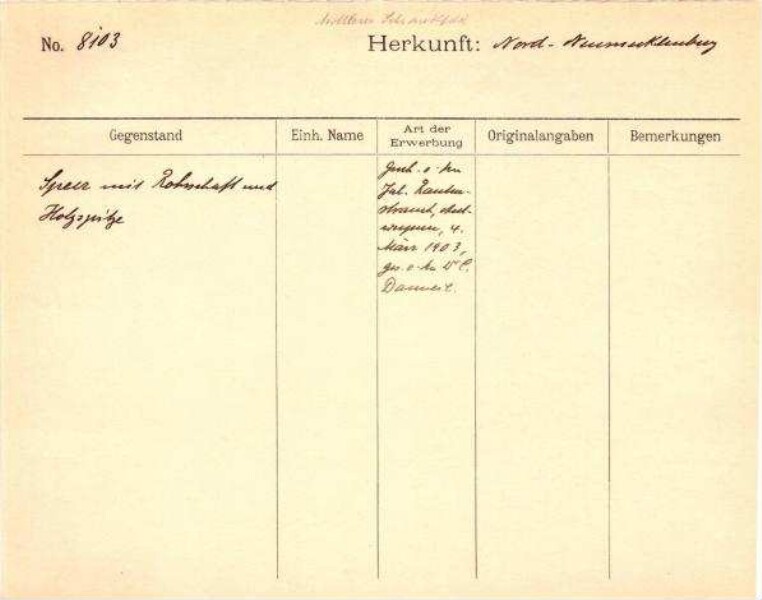 No. 8103
Herkunft: Nord-Neumecklenburg
Gegenstand
Einh. Name
Art der
Erwerbung
Originalangaben
Bemerkungen
Speer mit Rohrschaft und
Holzspitze
Gesch. v. Hn
Jul. Rauten-
strauch, Ant-
werpen, 4.
März 1903,
ges. v. Hn Dr C.
Danneil.